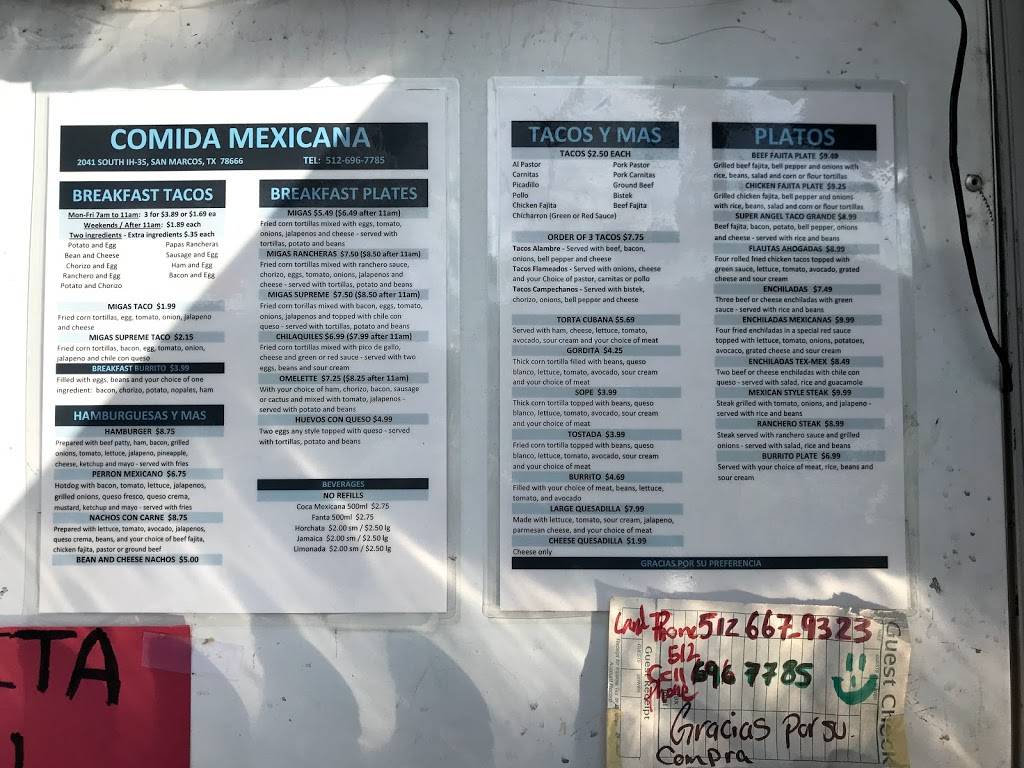 COMIDA MEXICANA
2041 SOUTH IH-35, SAN MARCOS, TX 78666 TEL: 512-696-7785
BREAKFAST TACOS
Mon-Fri 7am to 11am: 3 for $3.89 or $1.69 ea
Weekends / After 11am: $1.89 each
Two ingredients - Extra ingredients $.35 each
Potato and Egg Papas Rancheras
Bean and Cheese Sausage and Egg
Chorizo and Egg Ham and Egg
Ranchero and Egg Bacon and Egg
Potato and Chorizo
MIGAS TACO $1.99
Fried corn tortillas, egg, tomato, onion, jalapeno
and cheese
MIGAS SUPREME TACO $2.15
Fried corn tortillas, bacon, egg, tomato, onion,
jalapeno and chile con queso
BREAKFAST BURRITO $3.99
Filled with eggs, beans and your choice of one
ingredient: bacon, chorizo, potato, nopales, ham
HAMBURGUESAS Y MAS
HAMBURGER $8.75
Prepared with beef patty, ham, bacon, grilled
onions, tomato, lettuce, jalapeno, pineapple,
cheese, ketchup and mayo - served with fries
PERRON MEXICANO $6.75
Hotdog with bacon, tomato, lettuce, jalapenos,
grilled onions, queso fresco, queso crema,
mustard, ketchup and mayo - served with fries
NACHOS CON CARNE $8.75
Prepared with lettuce, tomato, avocado, jalapenos,
queso crema, beans, and your choice of beef fajita,
chicken fajita, pastor or ground beef
BEAN AND CHEESE NACHOS $5.00
BREAKFAST PLATES
MIGAS $5.49 ($6.49 after 11am)
Fried corn tortillas mixed with eggs, tomato,
onions, jalapenos and cheese - served with
tortillas, potato and beans
MIGAS RANCHERAS $7.50 ($8.50 after 11am)
Fried corn tortillas mixed with ranchero sauce,
chorizo, eggs, tomato, onions, jalapenos and
cheese - served with tortillas, potato and beans
MIGAS SUPREME $7.50 ($8.50 after 11am)
Fried corn torillas mixed with bacon, eggs, tomato,
onions, jalapenos and topped with chile con
queso - served with tortillas, potato and beans
CHILAQUILES $6.99 ($7.99 after 11am)
Fried corn tortillas mixed with pico de gallo,
cheese and green or red sauce - served with two
eggs, beans and sour cream
OMELETTE $7.25 ($8.25 after 11am)
With your choice of ham, chorizo, bacon, sausage
or cactus and mixed with tomato, jalapenos -
served with potato and beans
HUEVOS CON QUESO $4.99
Two eggs any style topped with queso - served
with tortillas, potato and beans
BEVERAGES
NO REFILLS
Coca Mexicana 500ml $2.75
Fanta 500ml $2.75
Horchata $2.00 sm / $2.50 lg
Jamaica $2.00 sm / $2.50 lg
Limonada $2.00 sm / $2.50 lg
TACOS Y MAS
TACOS $2.50 EACH
Al Pastor Pork Pastor
Carnitas Pork Carnitas
Picadillo Ground Beef
Pollo Bistek
Chicken Fajita Beef Fajita
Chicharron (Green or Red Sauce)
ORDER OF 3 TACOS $7.75
Tacos Alambre - Served with beef, bacon,
onions, bell pepper and cheese
Tacos Flameados - Served with onions, cheese
and your Choice of pastor, carnitas or pollo
Tacos Campechanos - Served with bistek,
chorizo, onions, bell pepper and cheese
TORTA CUBANA $5.69
Served with ham, cheese, lettuce, tomato,
avocado, sour cream and your choice of meat
GORDITA $4.25
Thick corn tortilla filled with beans, queso
blanco, lettuce, tomato, avocado, sour cream
and your choice of meat
SOPE $3.99
Thick corn tortilla topped with beans, queso
blanco, lettuce, tomato, avocado, sour cream
and your choice of meat
TOSTADA $3.99
Fried corn tortilla topped with beans, queso
blanco, lettuce, tomato, avocado, sour cream
and your choice of meat
BURRITO $4.69
Filled with your choice of meat, beans, lettuce,
tomato, and avocado
LARGE QUESADILLA $7.99
Made with lettuce, tomato, sour cream, jalapeno,
parmesan cheese, and your choice of meat
CHEESE QUESADILLA $1.99
Cheese only
PLATOS
BEEF FAJITA PLATE $9.49
Grilled beef fajita, bell pepper and onions with
rice, beans, salad and corn or flour tortillas
CHICKEN FAJITA PLATE $9.25
Grilled chicken fajita, bell pepper and onions
with rice, beans, salad and corn or flour tortillas
SUPER ANGEL TACO GRANDE $8.99
Beef fajita, bacon, potato, bell pepper, onions
and cheese - served with rice and beans
FLAUTAS AHOGADAS $8.99
Four rolled fried chicken tacos topped with
green sauce, lettuce, tomato, avocado, grated
cheese and sour cream
ENCHILADAS $7.49
Three beef or cheese enchiladas with green
sauce - served with rice and beans
ENCHILADAS MEXICANAS $9.99
Four fried enchiladas in a special red sauce
topped with lettuce, tomato, onions, potatoes,
avocaco, grated cheese and sour cream
ENCHILADAS TEX-MEX $8.49
Two beef or cheese enchiladas with chile con
queso - served with salad, rice and guacamole
MEXICAN STYLE STEAK $9.99
Steak grilled with tomato, onions, and jalapeno -
served with rice and beans
RANCHERO STEAK $8.99
Steak served with ranchero sauce and grilled
onions - served with salad, rice and beans
BURRITO PLATE $6.99
Served with your choice of meat, rice, beans and
sour cream
GRACIAS POR SU PREFERENCIA
Land Phone 512 667-9323
512
Cell 696 7785
Phone
Gracias Por su
Compra
Guest Check
Guest Receipt
ETA